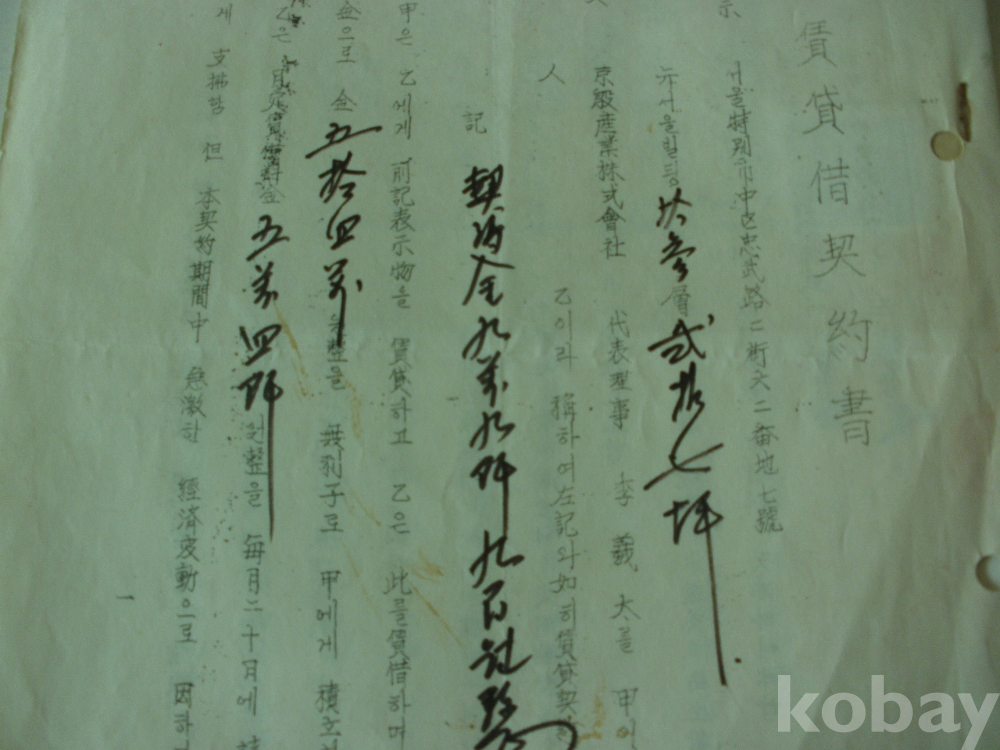 賃貸借契約書
서울特別市中区忠武路二街六二番地七號
層 弐拾七坪
京殷産業株式會社 代表理事 李義太를 甲이
人 乙이라 稱하여 左記와 如히 賃貸契
記
契約金九萬九阡九百원整
甲은 乙에게 前記表示物을 賃貸하고 乙은 此를 賃借하며
金으로 金五拾四萬 整을 無利子로 甲에게 積
乙은 月 賃貸料金 五萬四阡원整을 毎月二十日에
게 支拂함 但 本契約期間中 急激한 經済変動으로 因하
kobay